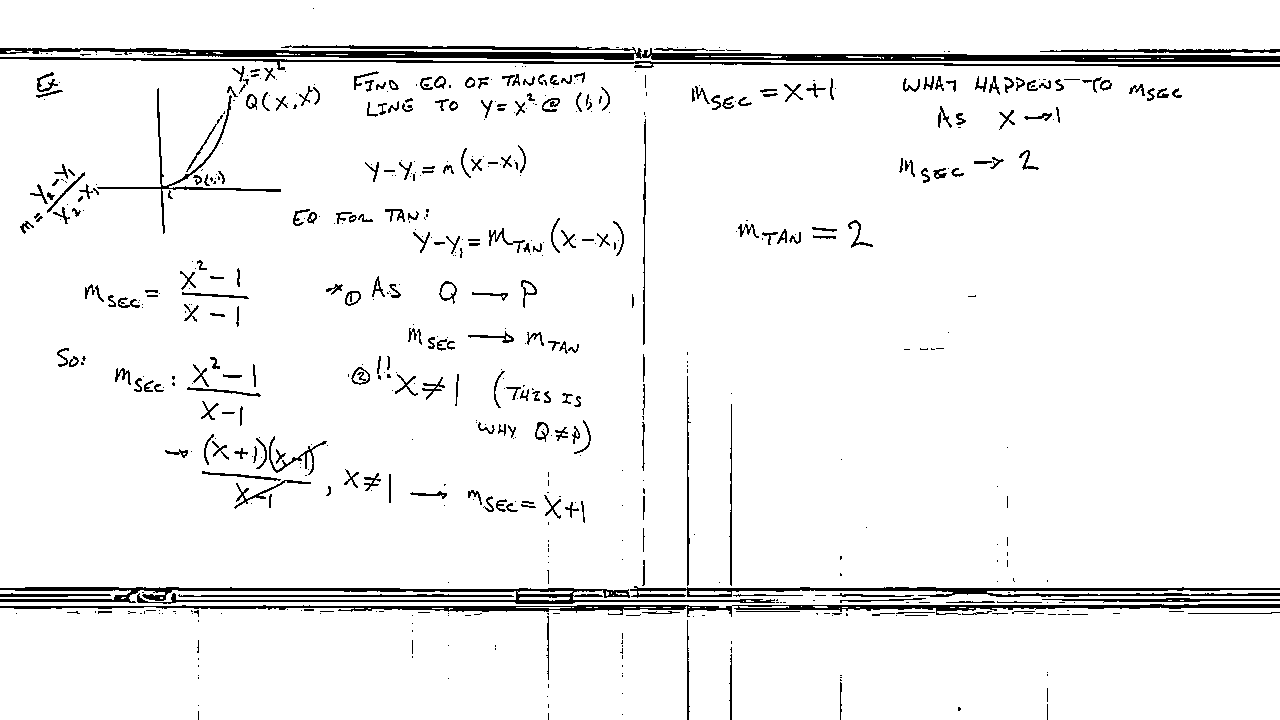 Ex
y=x²
Q(x,x²)
P(1,1)
1
m = y₂-y₁ / x₂-x₁
FIND EQ. OF TANGENT
LINE TO y=x² @ (1,1)
y-y₁=m(x-x₁)
EQ FOR TAN:
y-y₁=m_TAN(x-x₁)
m_SEC = x²-1 / x-1
* ① AS Q → P
m_SEC → m_TAN
So:
m_SEC: x²-1 / x-1
② !! x≠1 (THIS IS
WHY Q≠P)
→ (x+1)(x-1) / x-1 , x≠1 → m_SEC = x+1
m_SEC = x+1
WHAT HAPPENS TO m_SEC
AS x→1
m_SEC → 2
m_TAN = 2